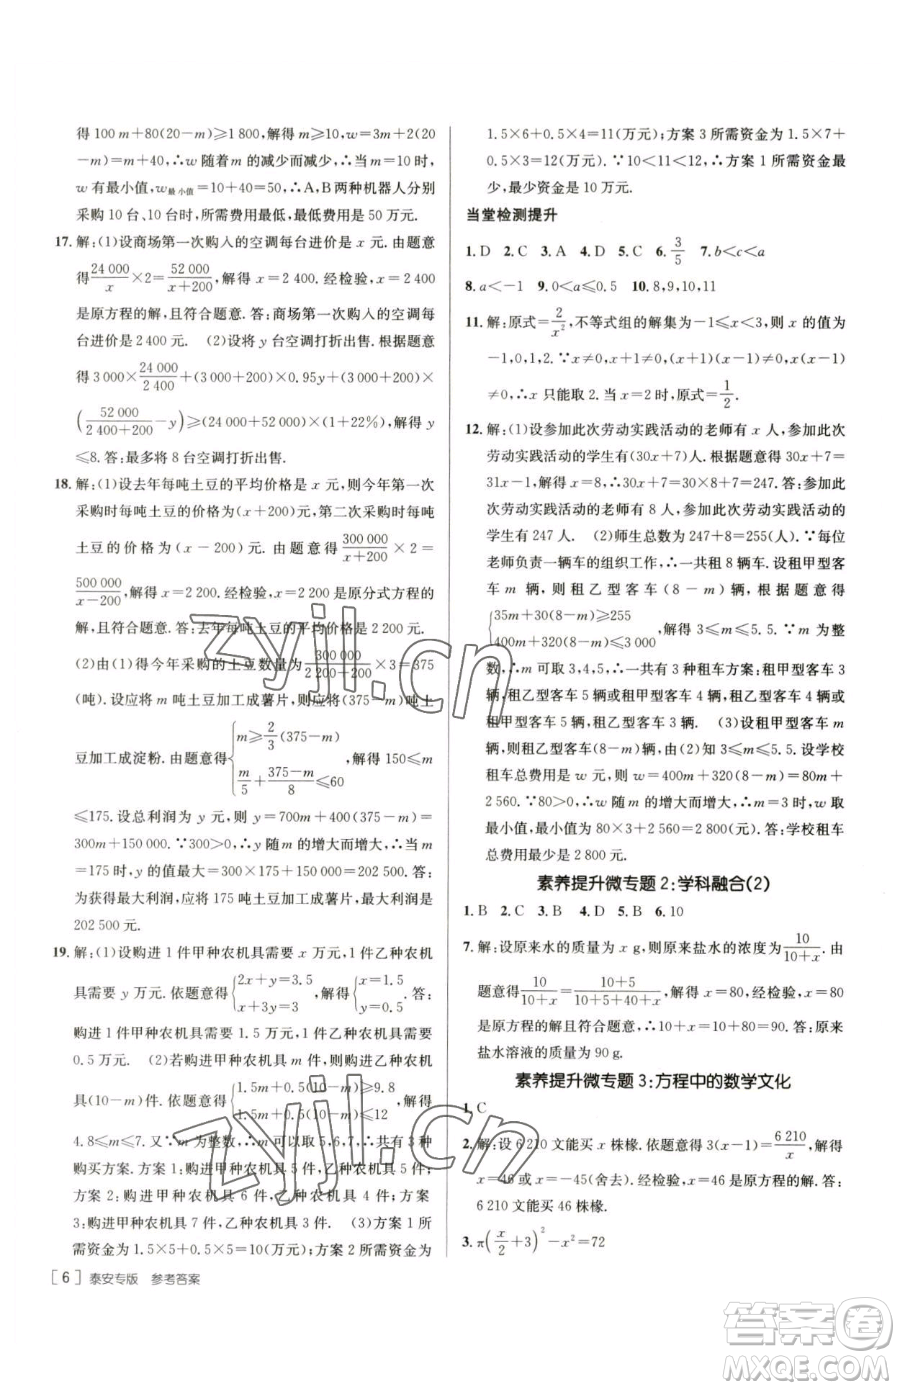 得 100 m+80(20-m)≥1 800,解得 m≥10,w=3m+2(20
-m)=m+40,∴w 随着 m 的减少而减少,∴当 m=10 时,
w 有最小值,w最小值=10+40=50,∴A,B两种机器人分别
采购 10 台、10 台时,所需费用最低,最低费用是 50 万元.
17. 解:(1)设商场第一次购入的空调每台进价是 x 元.由题意
得 24 000/x×2=52 000/(x+200),解得 x=2 400.经检验,x=2 400
是原方程的解,且符合题意.答:商场第一次购入的空调每
台进价是 2 400 元. (2)设将 y 台空调打折出售.根据题意
得 3 000×24 000/2 400+(3 000+200)×0.95y+(3 000+200)×
(52 000/(2 400+200)-y)≥(24 000+52 000)×(1+22%),解得 y
≤8.答:最多将 8 台空调打折出售.
18. 解:(1)设去年每吨土豆的平均价格是 x 元,则今年第一次
采购每吨土豆的平均价格为(x+200)元,第二次采购每吨
土豆的价格为(x-200)元.由题意得 300 000/(x+200)×2=
500 000/(x-200),解得 x=2 200.经检验,x=2 200 是原分式方程的
解,且符合题意.答:去年每吨土豆的平均价格是 2 200 元.
(2)由(1)得今年采购的土豆数量为 300 000/(2 200+200)×3=375
(吨).设应将 m 吨土豆加工成薯片,则应将(375-m)吨土
豆加工成淀粉.由题意得{m≥2/3(375-m) m/5+(375-m)/8≤60,解得 150≤m
≤175.设总利润为 y 元,则 y=700m+400(375-m)=
300m+150 000.∵300>0,∴y 随 m 的增大而增大,∴当 m
=175 时,y 的值最大=300×175+150 000=202 500.答:
为获得最大利润,应将 175 吨土豆加工成薯片,最大利润是
202 500 元.
19. 解:(1)设购进 1 件甲种农机具需要 x 万元,1 件乙种农机
具需要 y 万元.依题意得{2x+y=3.5 x+3y=3,解得{x=1.5 y=0.5.答:
购进 1 件甲种农机具需要 1.5 万元,1 件乙种农机具需要
0.5 万元. (2)若购进甲种农机具 m 件,则购进乙种农机
具(10-m)件.依题意得{1.5m+0.5(10-m)≥9.8 1.5m+0.5(10-m)≤12,解得
4.8≤m≤7.又∵m 为整数,∴m 可以取 5,6,7,∴共有 3 种
购买方案.方案 1:购进甲种农机具 5 件,乙种农机具 5 件;
方案 2:购进甲种农机具 6 件,乙种农机具 4 件;方案 3:
购进甲种农机具 7 件,乙种农机具 3 件. (3)方案 1 所
需资金为 1.5×5+0.5×5=10(万元);方案 2 所需资金为
1.5×6+0.5×4=11(万元);方案 3 所需资金为 1.5×7+
0.5×3=12(万元).∵10<11<12,∴方案 1 所需资金最
少,最少资金是 10 万元.
当堂检测提升
1. D 2. C 3. A 4. D 5. C 6. 3/5 7. b<c<a
8. a<-1 9. 0<a≤0.5 10. 8,9,10,11
11. 解:原式=2/x²,不等式组的解集为-1≤x<3,则 x 的值为
-1,0,1,2.∵x≠-1,x≠1,x
≠0,∴x 只能取 2.当 x=2 时,原式=1/2.
12. 解:(1)设参加此次劳动实践活动的老师有 x 人,参加此次
劳动实践活动的学生有(30x+7)人.根据题意得 30x+7=
31x-1,解得 x=8,∴30x+7=30×8+7=247.答:参加此
次劳动实践活动的老师有 8 人,参加此次劳动实践活动的
学生有 247 人. (2)师生总数为 247+8=255(人).∵每位
老师负责一辆车的组织工作,∴一共租 8 辆车.设租甲型客
车 m 辆,则租乙型客车(8-m)辆.根据题意得
{35m+30(8-m)≥255 400m+320(8-m)≤3 000,解得 3≤m≤5.5.∵m 为整
数,∴m 可取 3,4,5,∴一共有 3 种租车方案:租甲型客车 3
辆,租乙型客车 5 辆或租甲型客车 4 辆,租乙型客车 4 辆
或租甲型客车 5 辆,租乙型客车 3 辆. (3)设租甲型客车 m
辆,则租乙型客车(8-m)辆.由(2)知 3≤m≤5.5.设学校
租车总费用是 w 元,则 w=400m+320(8-m)=80m+
2 560.∵80>0,∴w 随 m 的增大而增大,∴当 m=3 时,w 取
最小值,最小值为 80×3+2 560=2 800(元).答:学校租车
总费用最少是 2 800 元.
素养提升微专题 2:学科融合(2)
1. B 2. C 3. B 4. B 5. B 6. 10
7. 解:设原来水的质量为 x g,则原来盐水的浓度为 10/(10+x).由
题意得 10/(10+x)=(10+5)/(10+5+40+x),解得 x=80,经检验,x=80
是原方程的解且符合题意,∴10+x=10+80=90.答:原来
盐水溶液的质量为 90 g.
素养提升微专题 3:方程中的数学文化
1. C
2. 解:设 6 210 文能买 x 株椽.依题意得 3(x-1)=6 210/x,解得
x=46 或 x=-45(舍去).经检验,x=46 是原方程的解.答:
6 210 文能买 46 株椽.
3. π(x/2+3)²-x²=72
[6] 泰安专版 参考答案
zyjl.cn
zyjl.cn
答案圈
MXQE.COM